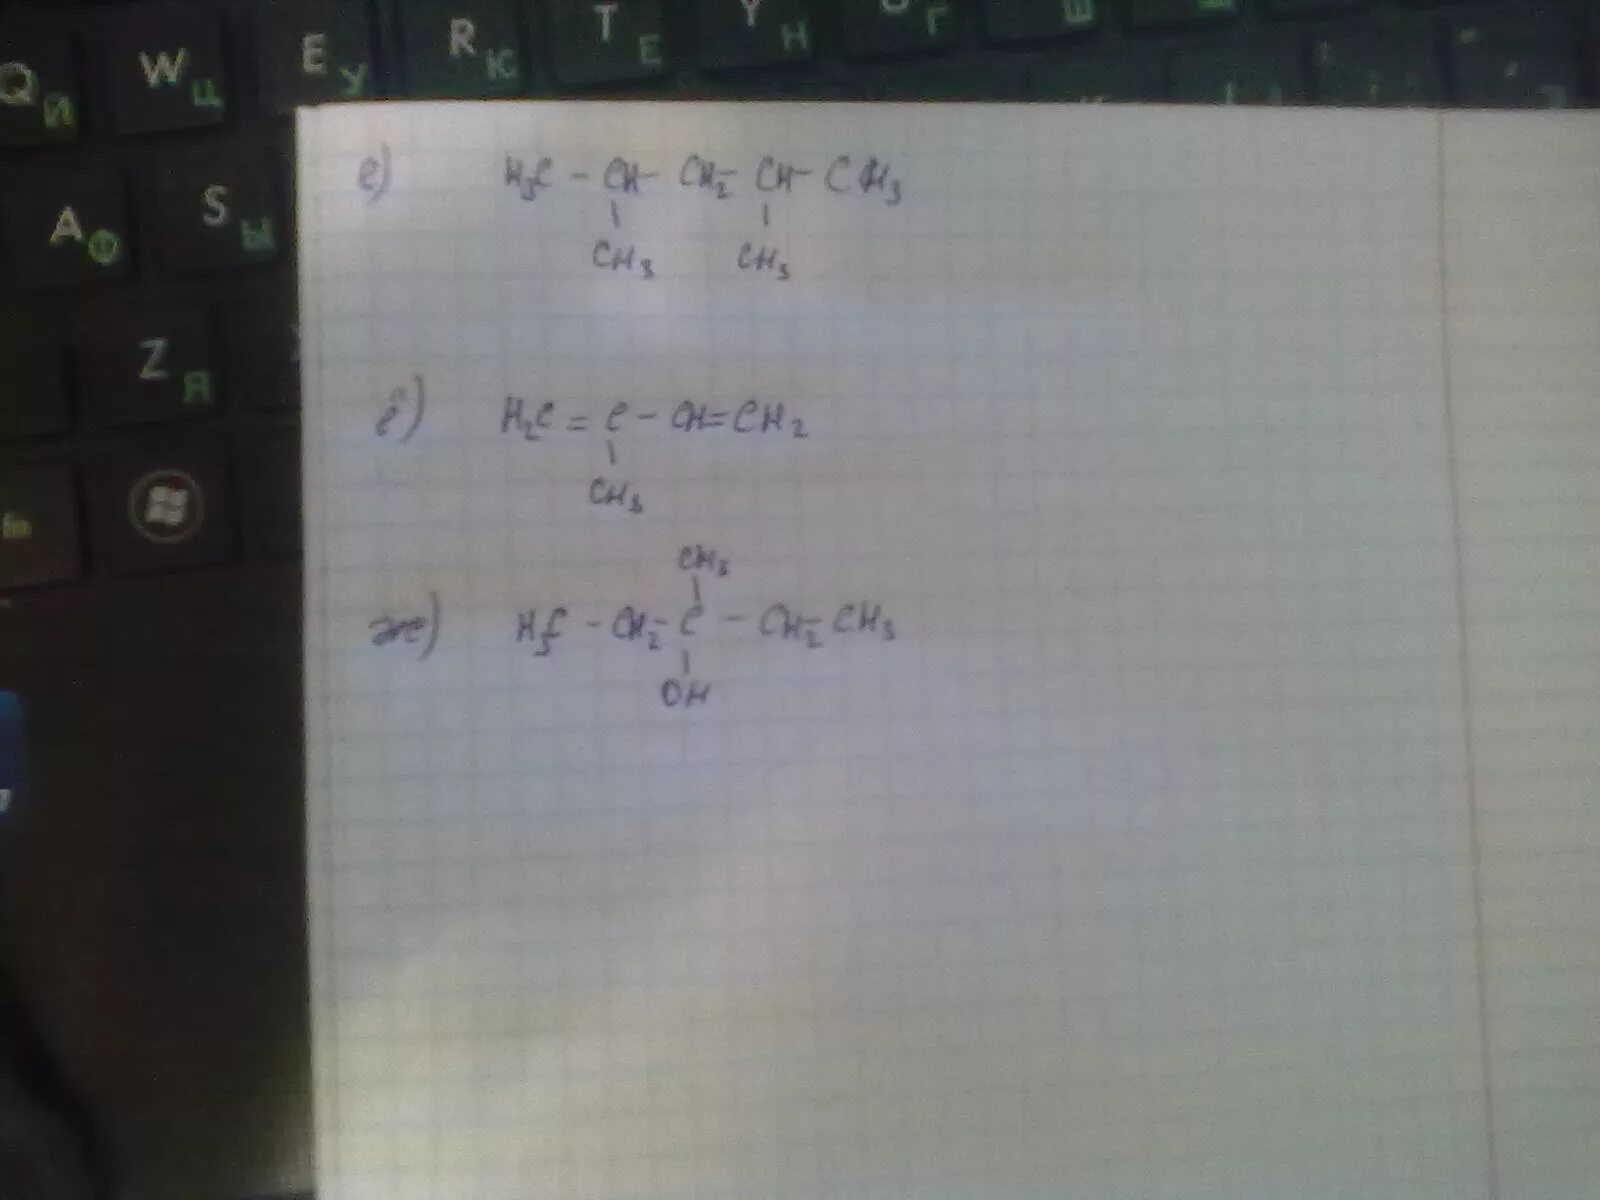 Q Й W Ц E У R К T Е Y Н Г Ш
A Ф S Ы
Z Я
fn
е) H₃C - CH - CH₂ - CH - CH₃
CH₃ CH₃
ё) H₂C = C - CH = CH₂
CH₃
CH₃
ж) H₃C - CH₂ - C - CH₂ - CH₃
OH